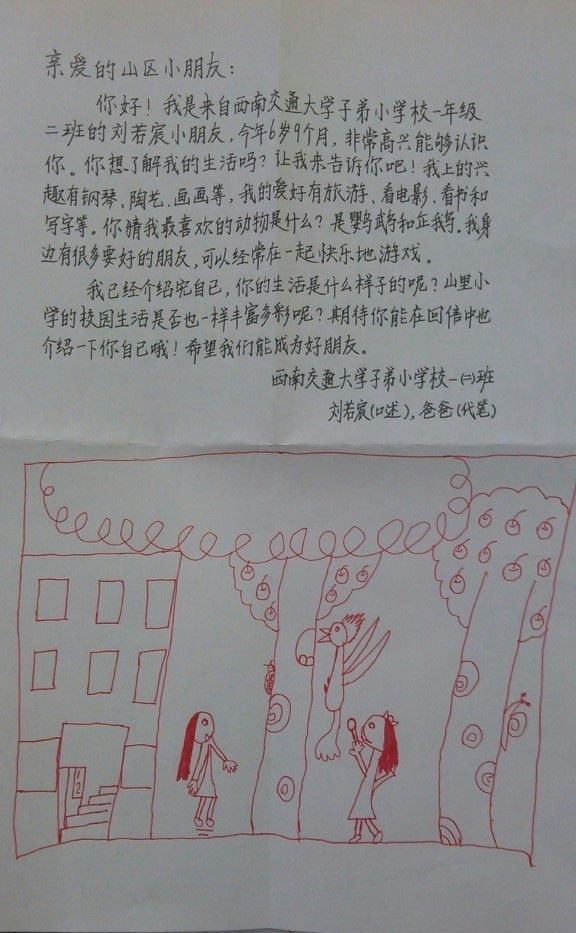 亲爱的山区小朋友：
你好！我是来自西南交通大学子弟小学校一年级
二班的刘若宸小朋友，今年6岁9个月，非常高兴能够认识
你。你想了解我的生活吗？让我来告诉你吧！我上的兴
趣有钢琴、陶艺、画画等，我的爱好有旅游、看电影、看书和
写字等。你猜我最喜欢的动物是什么？是鹦鹉和企鹅。我身
边有很多要好的朋友，可以经常在一起快乐地游戏。
我已经介绍完自己，你的生活是什么样子的呢？山里小
学的校园生活是否也一样丰富多彩呢？期待你能在回信中也
介绍一下你自己哦！希望我们能成为好朋友。
西南交通大学子弟小学校一㈡班
刘若宸(口述)，爸爸(代笔)
1
2